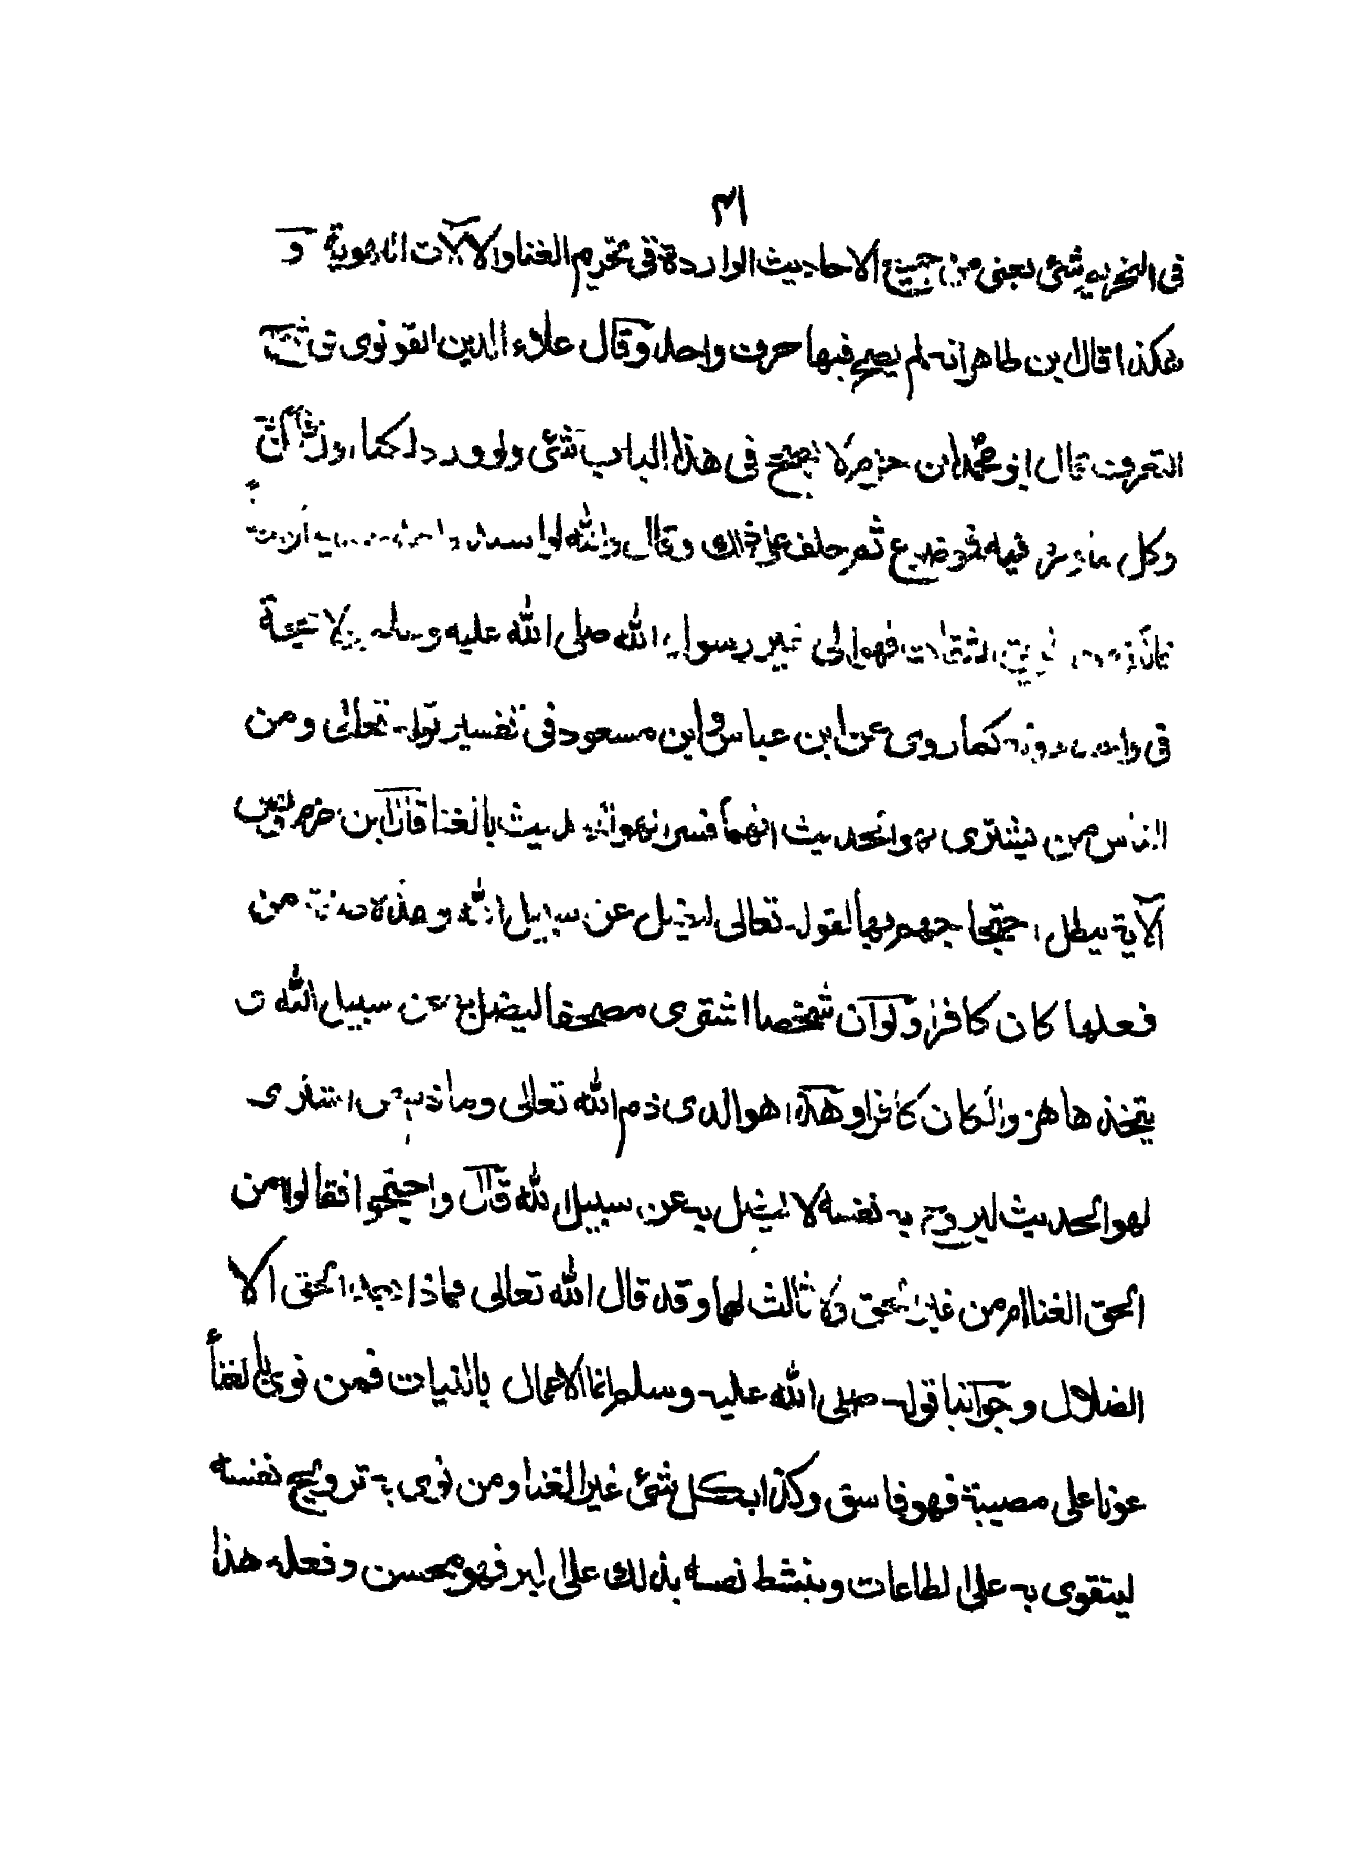 ٣١
فى التحريم شئ يعنى من جميع الاحاديث الواردة فى تحريم الغنا والآلات اللهوية و
هكذا قال بن طاهر انه لم يصح فيها حرف واحد وقال علاء الدين القونوى فى شرح
التعرف قال ابو محمد ابن حزم لا يصح فى هذا الباب شئ ولوورد لكنا اول قائل
وكل ما ورد فيه موضوع ثم حلف على ذلك وقال والله لو اسند
الثقات فهو الى غير رسول الله صلى الله عليه وسلم ولا حجة
فى دونه كما روى عن ابن عباس وابن مسعود فى تفسير قوله تعالى ومن
الناس من يشترى لهو الحديث انهما فسرا لهو الحديث بالغنا قال ابن حزم نص
الآية يبطل احتجاجهم بها لقوله تعالى ليضل عن سبيل الله وهذه صفة من
فعلها كان كافرا ولو ان شخصا اشترى مصحفا ليضل به عن سبيل الله
يتخذها هزوا لكان كافرا وهذا هو الذى ذم الله تعالى وما ذم من اشترى
لهو الحديث ليروح به نفسه لا ليضل به عن سبيل الله قال واحتجوا فقالوا من
الحق الغنا ام من غير الحق ولا ثالث لهما وقد قال الله تعالى فماذا بعد الحق الا
الضلال وجوابنا قوله صلى الله عليه وسلم انما الاعمال بالنيات فمن نوى بالغنا
عونا على مصيبة فهو فاسق وكذا بكل شئ غير الغنا ومن نوى به ترويح نفسه
ليتقوى به على الطاعات وينشط نفسه بذلك على البر فهو محسن وفعله هذا